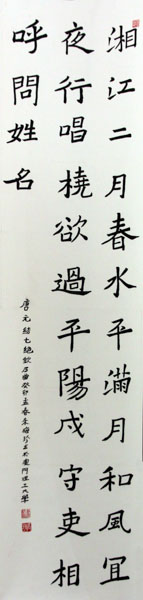 湘江二月春水平滿月和風宜
夜行唱橈欲過平陽戍守吏相
呼問姓名
唐元結七絕欵乃曲癸卯孟春